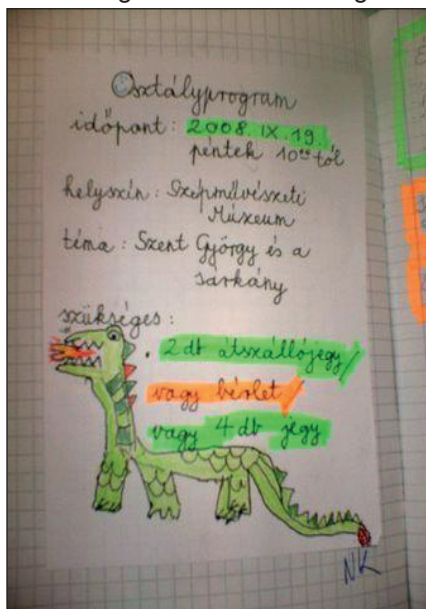 Osztályprogram
időpont: 2008. IX. 19.
péntek 10⁰⁰ tól
helyszín: Szépművészeti
Múzeum
téma: Szent György és a
sárkány
szükséges:
• 2 db átszállójegy/
vagy bérlet/
vagy 4 db jegy
NK